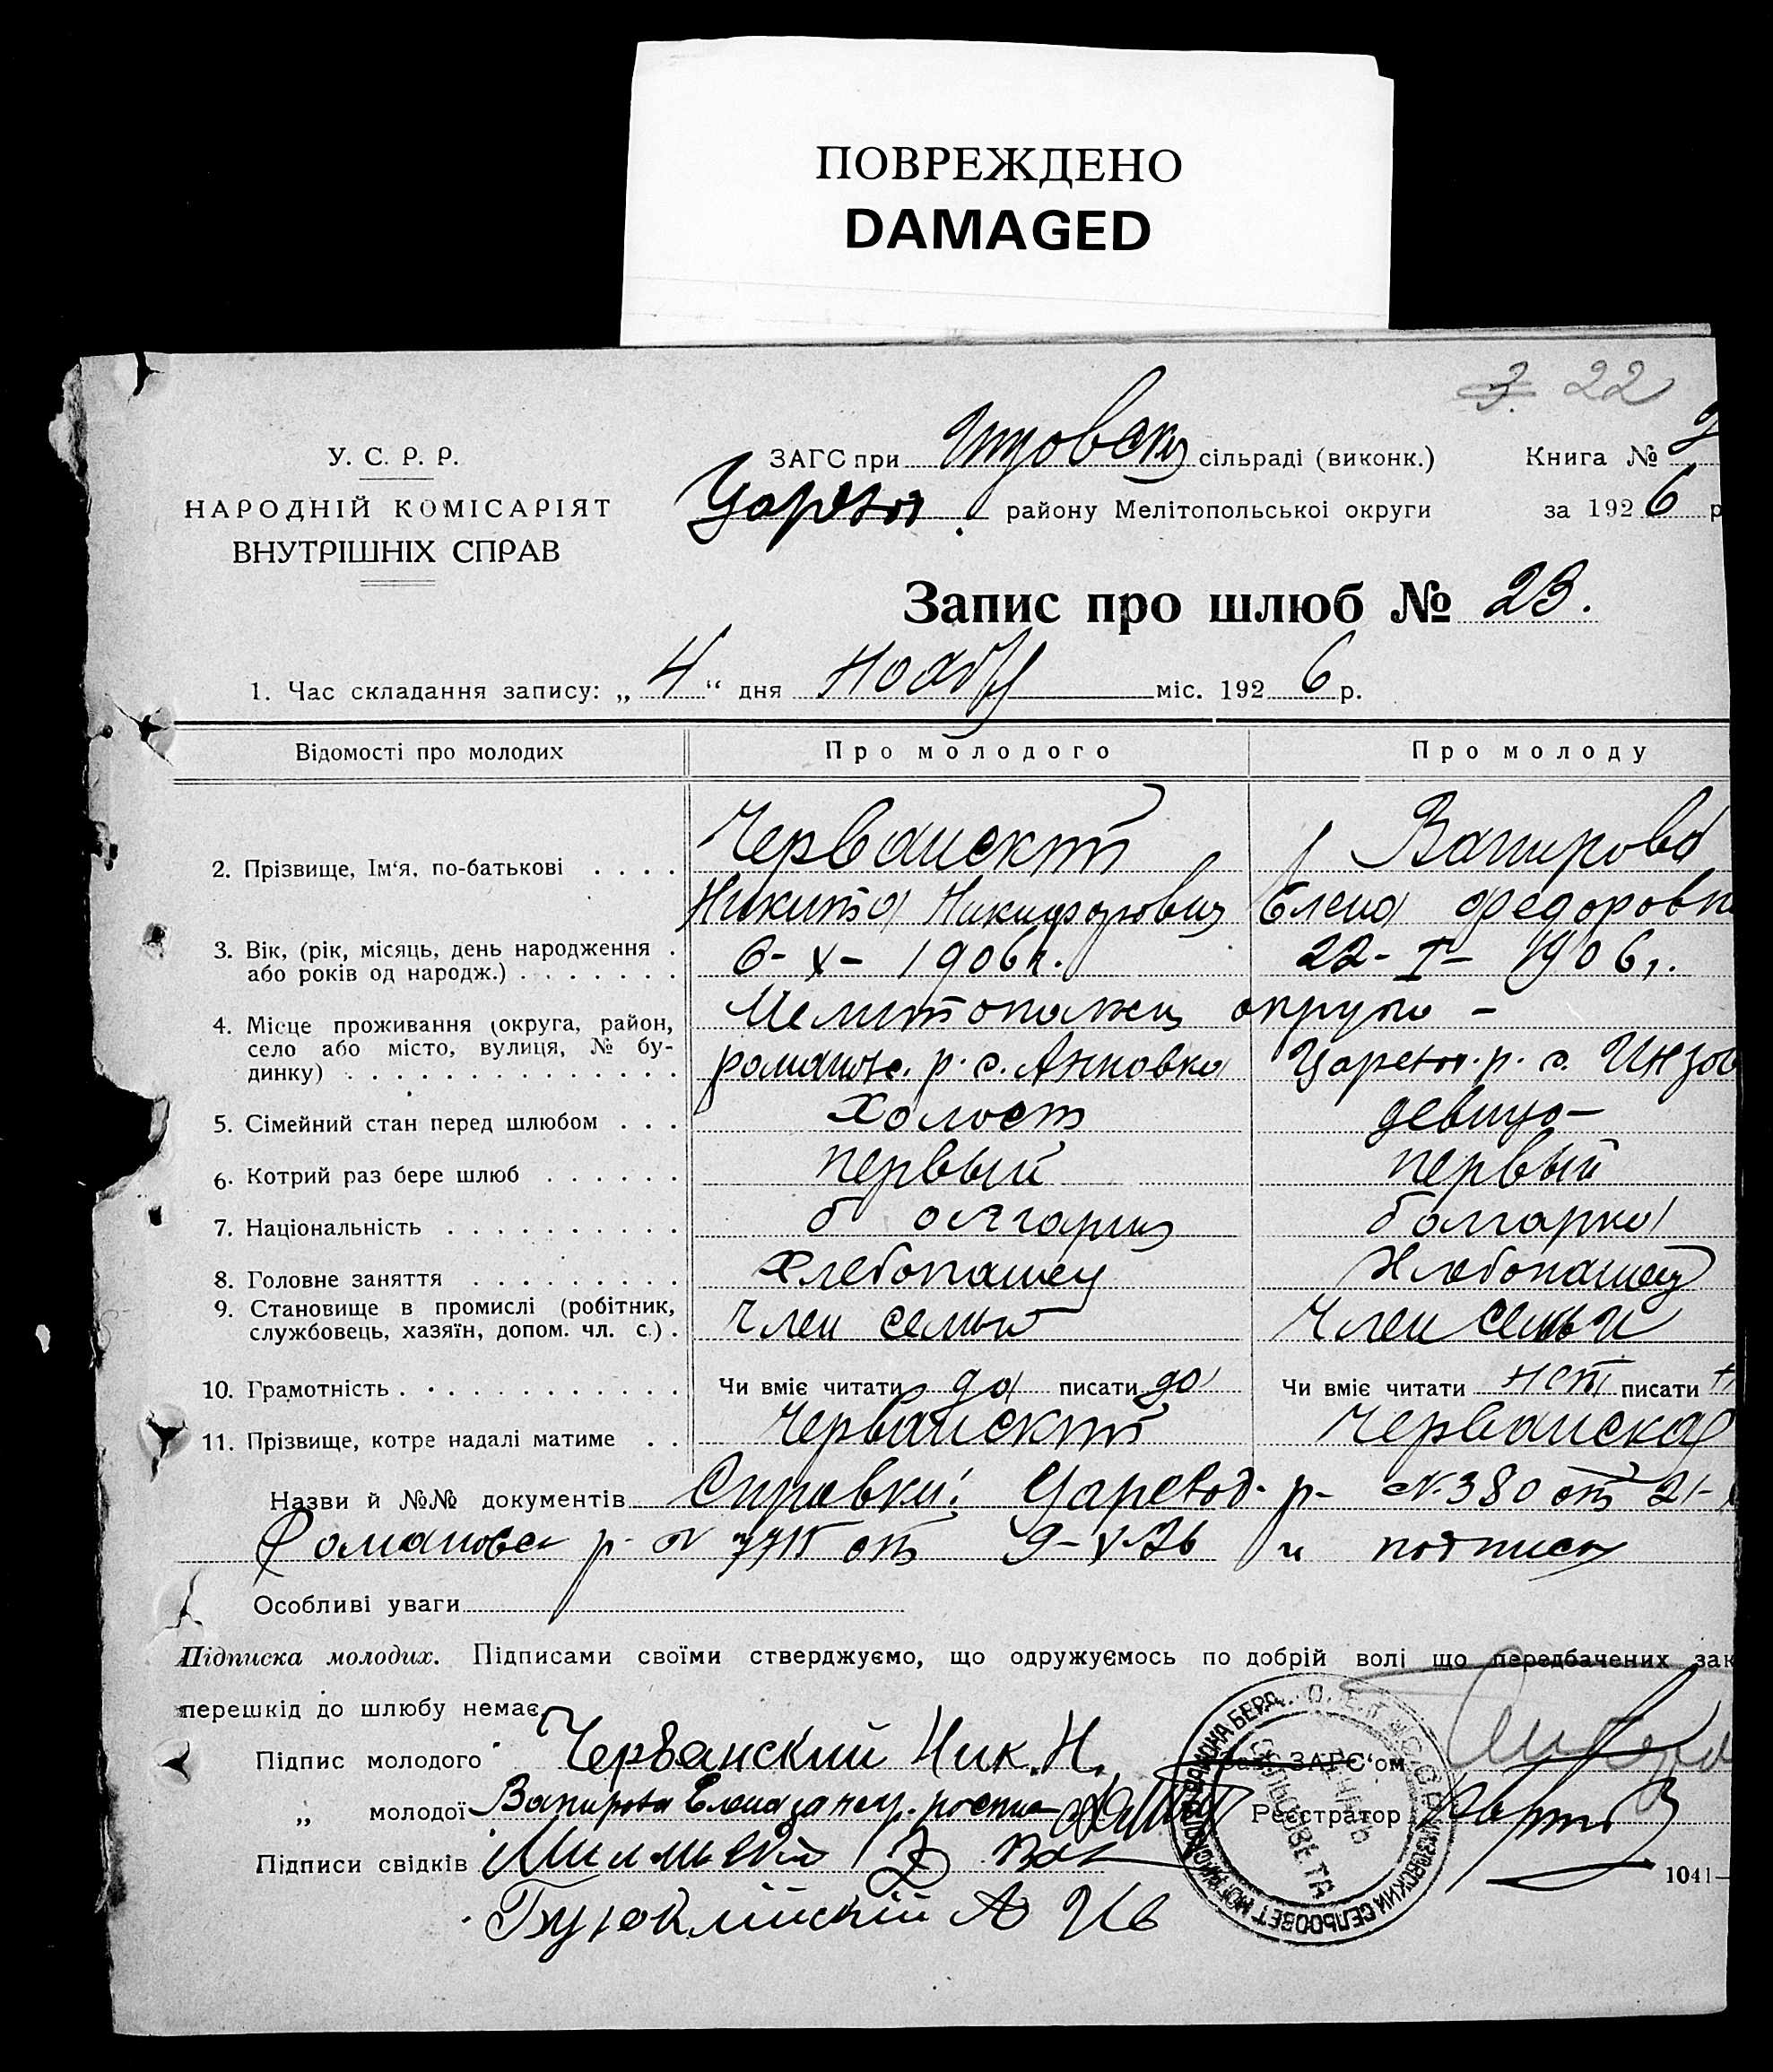 ПОВРЕЖДЕНО
DAMAGED
3. 22
У. С. Р. Р.
НАРОДНІЙ КОМІСАРІЯТ
ВНУТРІШНІХ СПРАВ
ЗАГС при сільраді (виконк.) Книга №
району Мелітопольскоі округи за 1926 р
Запис про шлюб № 23.
1. Час складання запису: „4“ дня міс. 1926 р.
Відомості про молодих Про молодого Про молоду
2. Прізвище, Ім‘я, по-батькові . . . . Червански Вапирова
Никита Никифорович Елена Федоровн
3. Вік, (рік, місяць, день народження .
або років од народж.) . . . . . . . 6-X-1906 г. 22-I-1906 г.
4. Місце проживання (округа, район,
село або місто, вулиця, № бу-
динку) . . . . . . . . . . . . . .
округа -
романов. р. с. Анновка Царевод. р. с. Инзов
5. Сімейний стан перед шлюбом . . . Холост девица-
6. Котрий раз бере шлюб . . . . . . первый первый
7. Національність . . . . . . . . . болгарин болгарка
8. Головне заняття . . . . . . . . . Хлебопашец Хлебопашец
9. Становище в промислі (робітник,
службовець, хазяїн, допом. чл. с.) . Член семьи Член семьи
10. Грамотність . . . . . . . . . . . . Чи вміє читати да писати да Чи вміє читати нет писати
11. Прізвище, котре надалі матиме . . Червански Червanская
Назви й №№ документів Справки: Царевод. р- № 380 от 21-
Романовск р- № от 9-V-26 и подписи
Особливі уваги
Підписка молодих. Підписами своїми стверджуємо, що одружуємось по добрій волі що передбачених зак
перешкід до шлюбу немає.
Підпис молодого Черванский Ник. Н. Зав. ЗАГС‘ом
„ молодої Вапирова Елена за негр. Реєстратор
Підписи свідків
1041—
СЕЛЬСОВЕТА